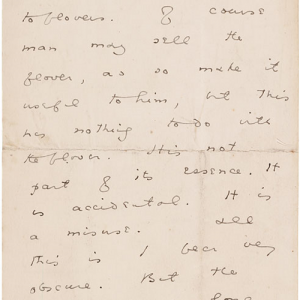 to flowers. Of course
man may sell the
flower, and so make it
useful to him, but this
has nothing to do with
the flower. It is not
part of its essence. It
is accidental. It is
a misuse. All
this is I fear very
obscure. But the